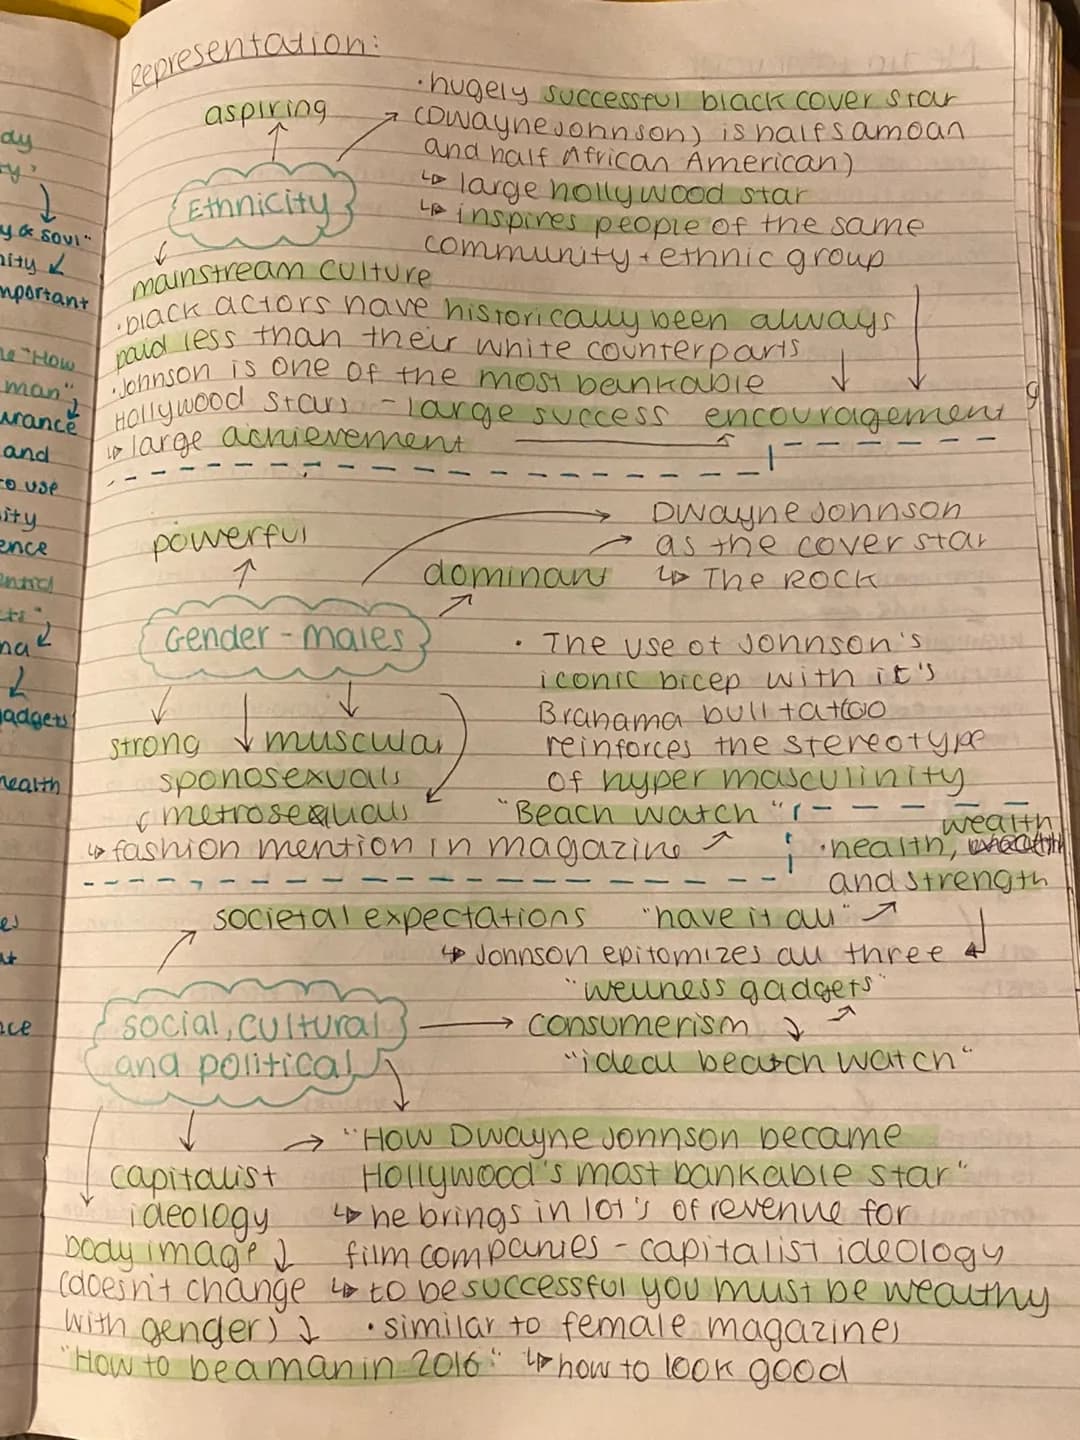 Representation:
· hugely successful black cover star
aspiring
(Dwayne Johnson) is half samoan
and half African American)
↳ large hollywood star
Ethnicity
↳ inspires people of the same
community + ethnic group
mainstream culture
· black actors have historically been always
paid less than their white counterparts
· Johnson is one of the most bankable
Hollywood stars - large success encouragement
↳ large achievement
Dwayne Johnson
powerful
as the cover star
dominant ↳ The ROCK
Gender - males
· The use of Johnson's
iconic bicep with it's
Brahama bull tattoo
strong muscular
reinforces the stereotype
sponosexuals
of hyper masculinity
metrosexuals "Beach watch"
wealth
↳ fashion mention in magazine
· health,
and strength
societal expectations "have it all"
↳ Johnson epitomizes all three
"wellness gadgets"
social, cultural
and political
consumerism
"ideal beach watch"
"How Dwayne Johnson became
capitalist Hollywood's most bankable star"
ideology ↳ he brings in lot's of revenue for
body image film companies - capitalist ideology
(doesn't change ↳ to be successful you must be wealthy
with gender) · similar to female magazines
"How to be a man in 2016" ↳ how to look good
day
y & soul"
nity
mportant
"How
man"
urance
and
to use
ity
ence
gadgets
health